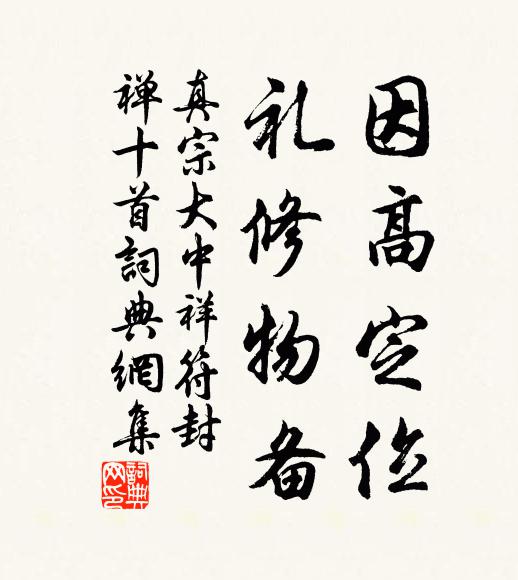 因高定位
礼修物备
真宗大中祥符封
禅十首詞典網集
詞典网印